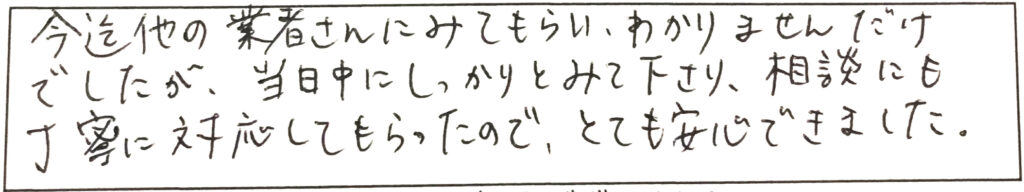 今迄他の業者さんにみてもらい、わかりませんだけ
でしたが、当日中にしっかりとみて下さり、相談にも
丁寧に対応してもらったので、とても安心できました。